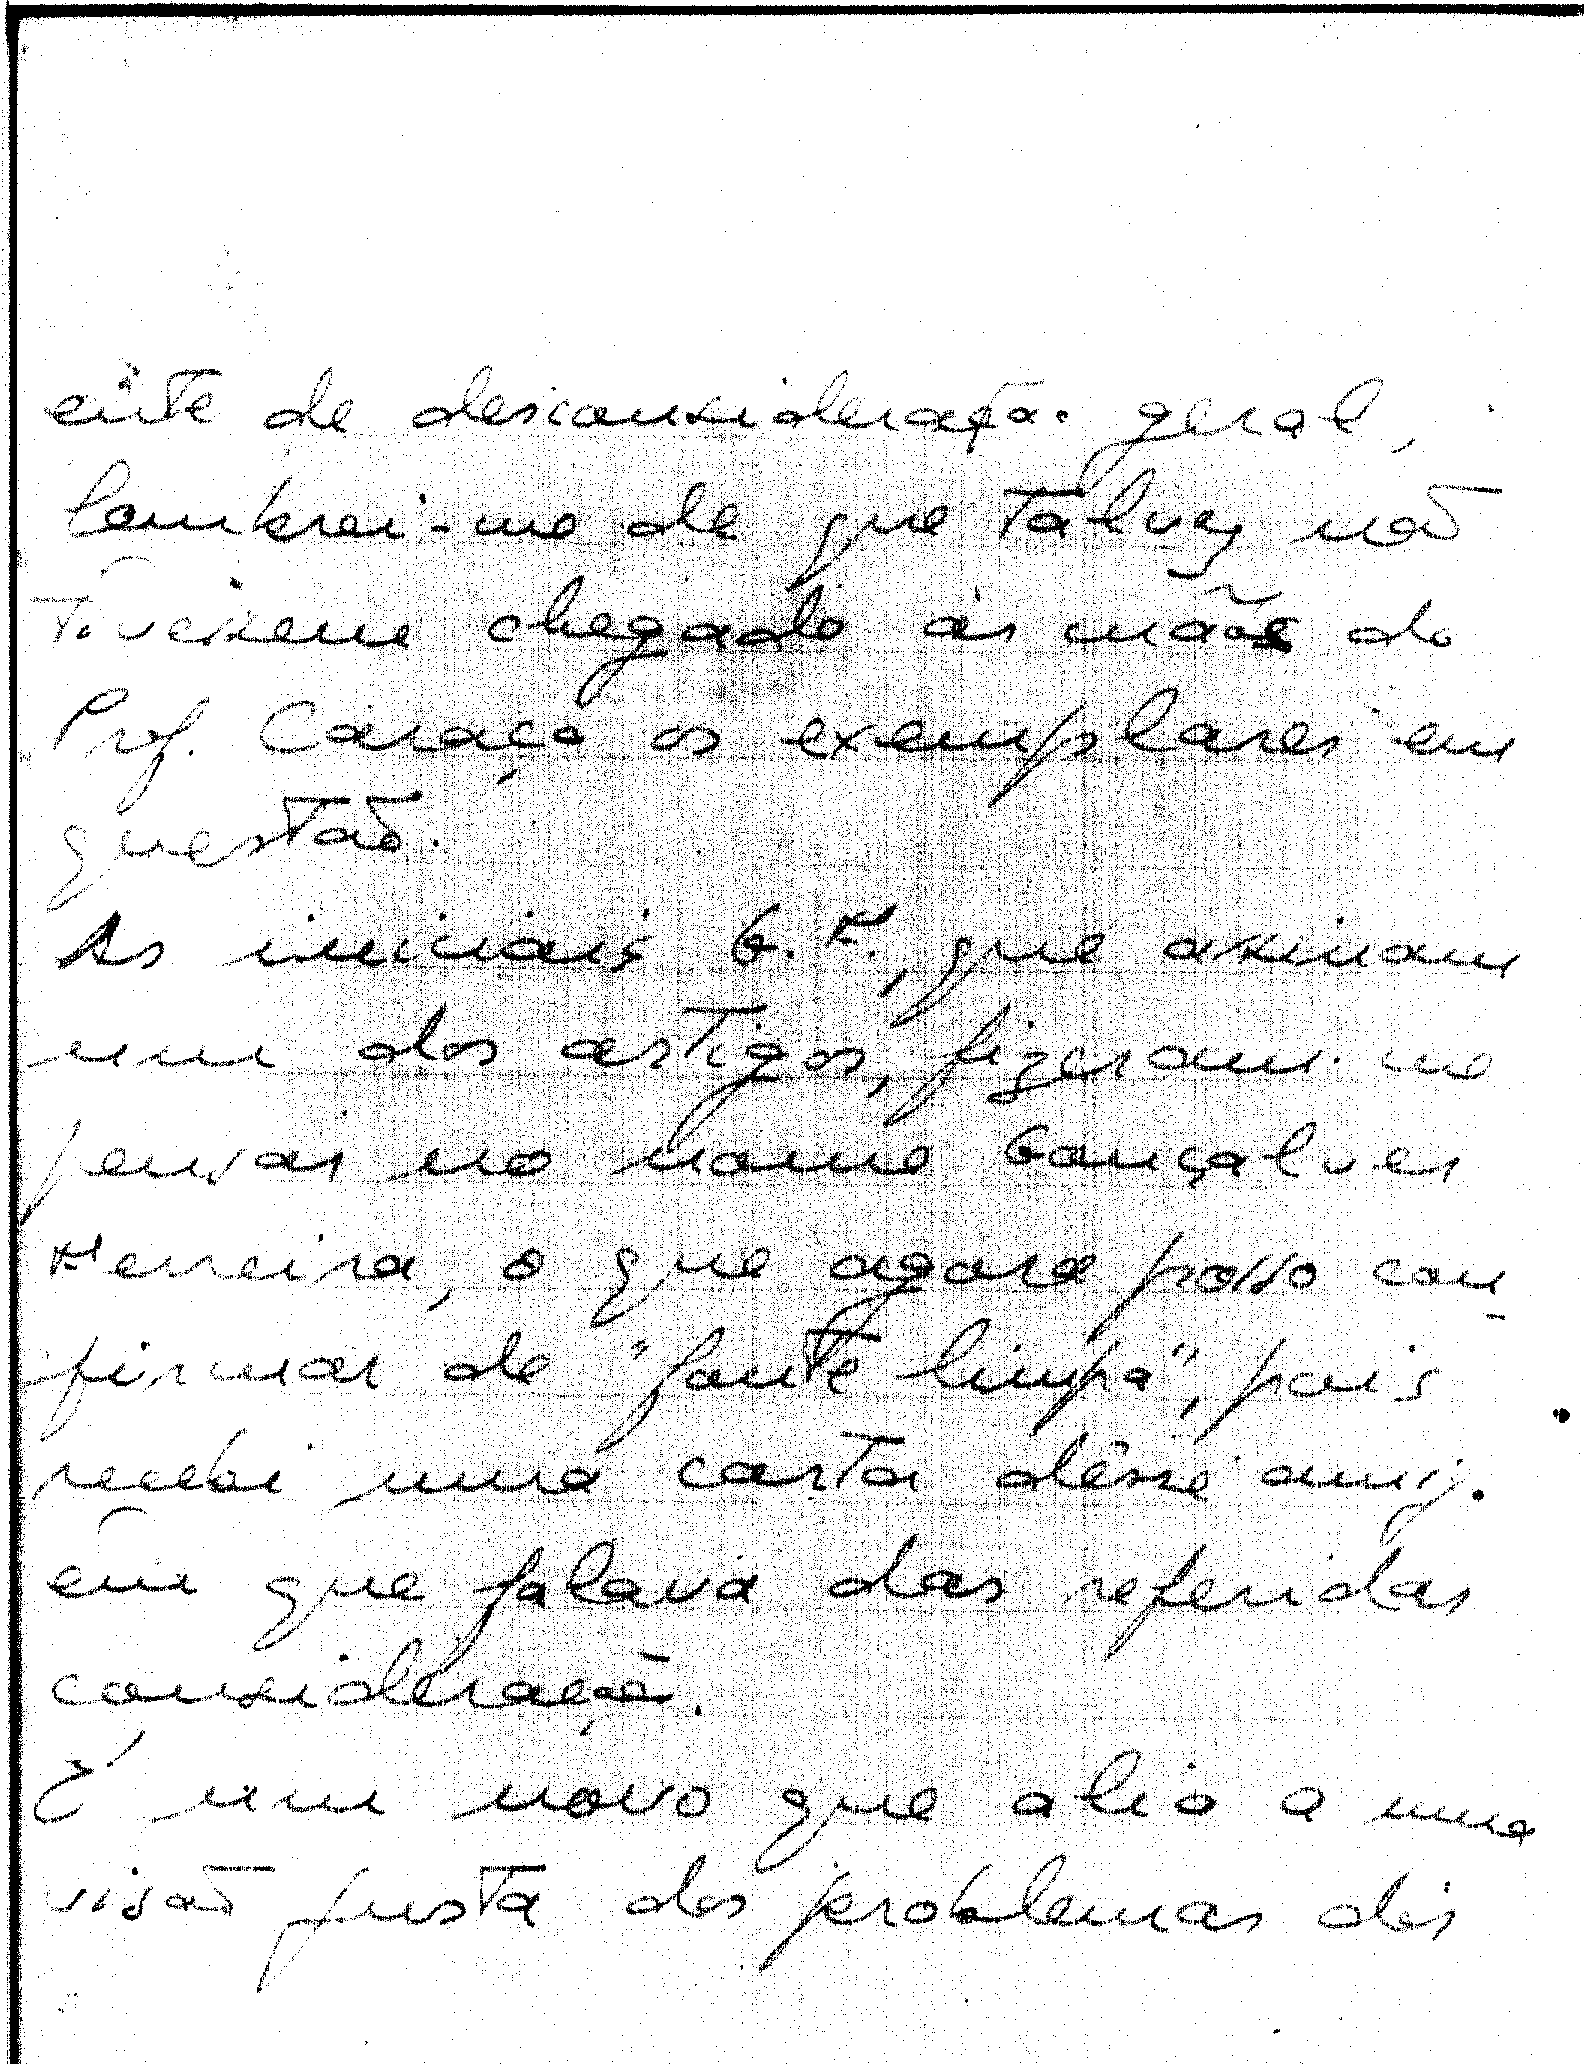 êste de desconsideração geral,
lembrei-me de que talvez não
tivessem chegado às mãos do
Prof. Caraça os exemplares em
questão.
As iniciais G. F., que assinam
um dos artigos, fizeram-me
pensar no nome Gonçalves
Ferreira, o que agora posso con-
firmar de "fonte limpa", pois
recebi uma carta dêsse amigo
em que falava das referidas
considerações.
É um novo que alia a uma
visão justa dos problemas dês